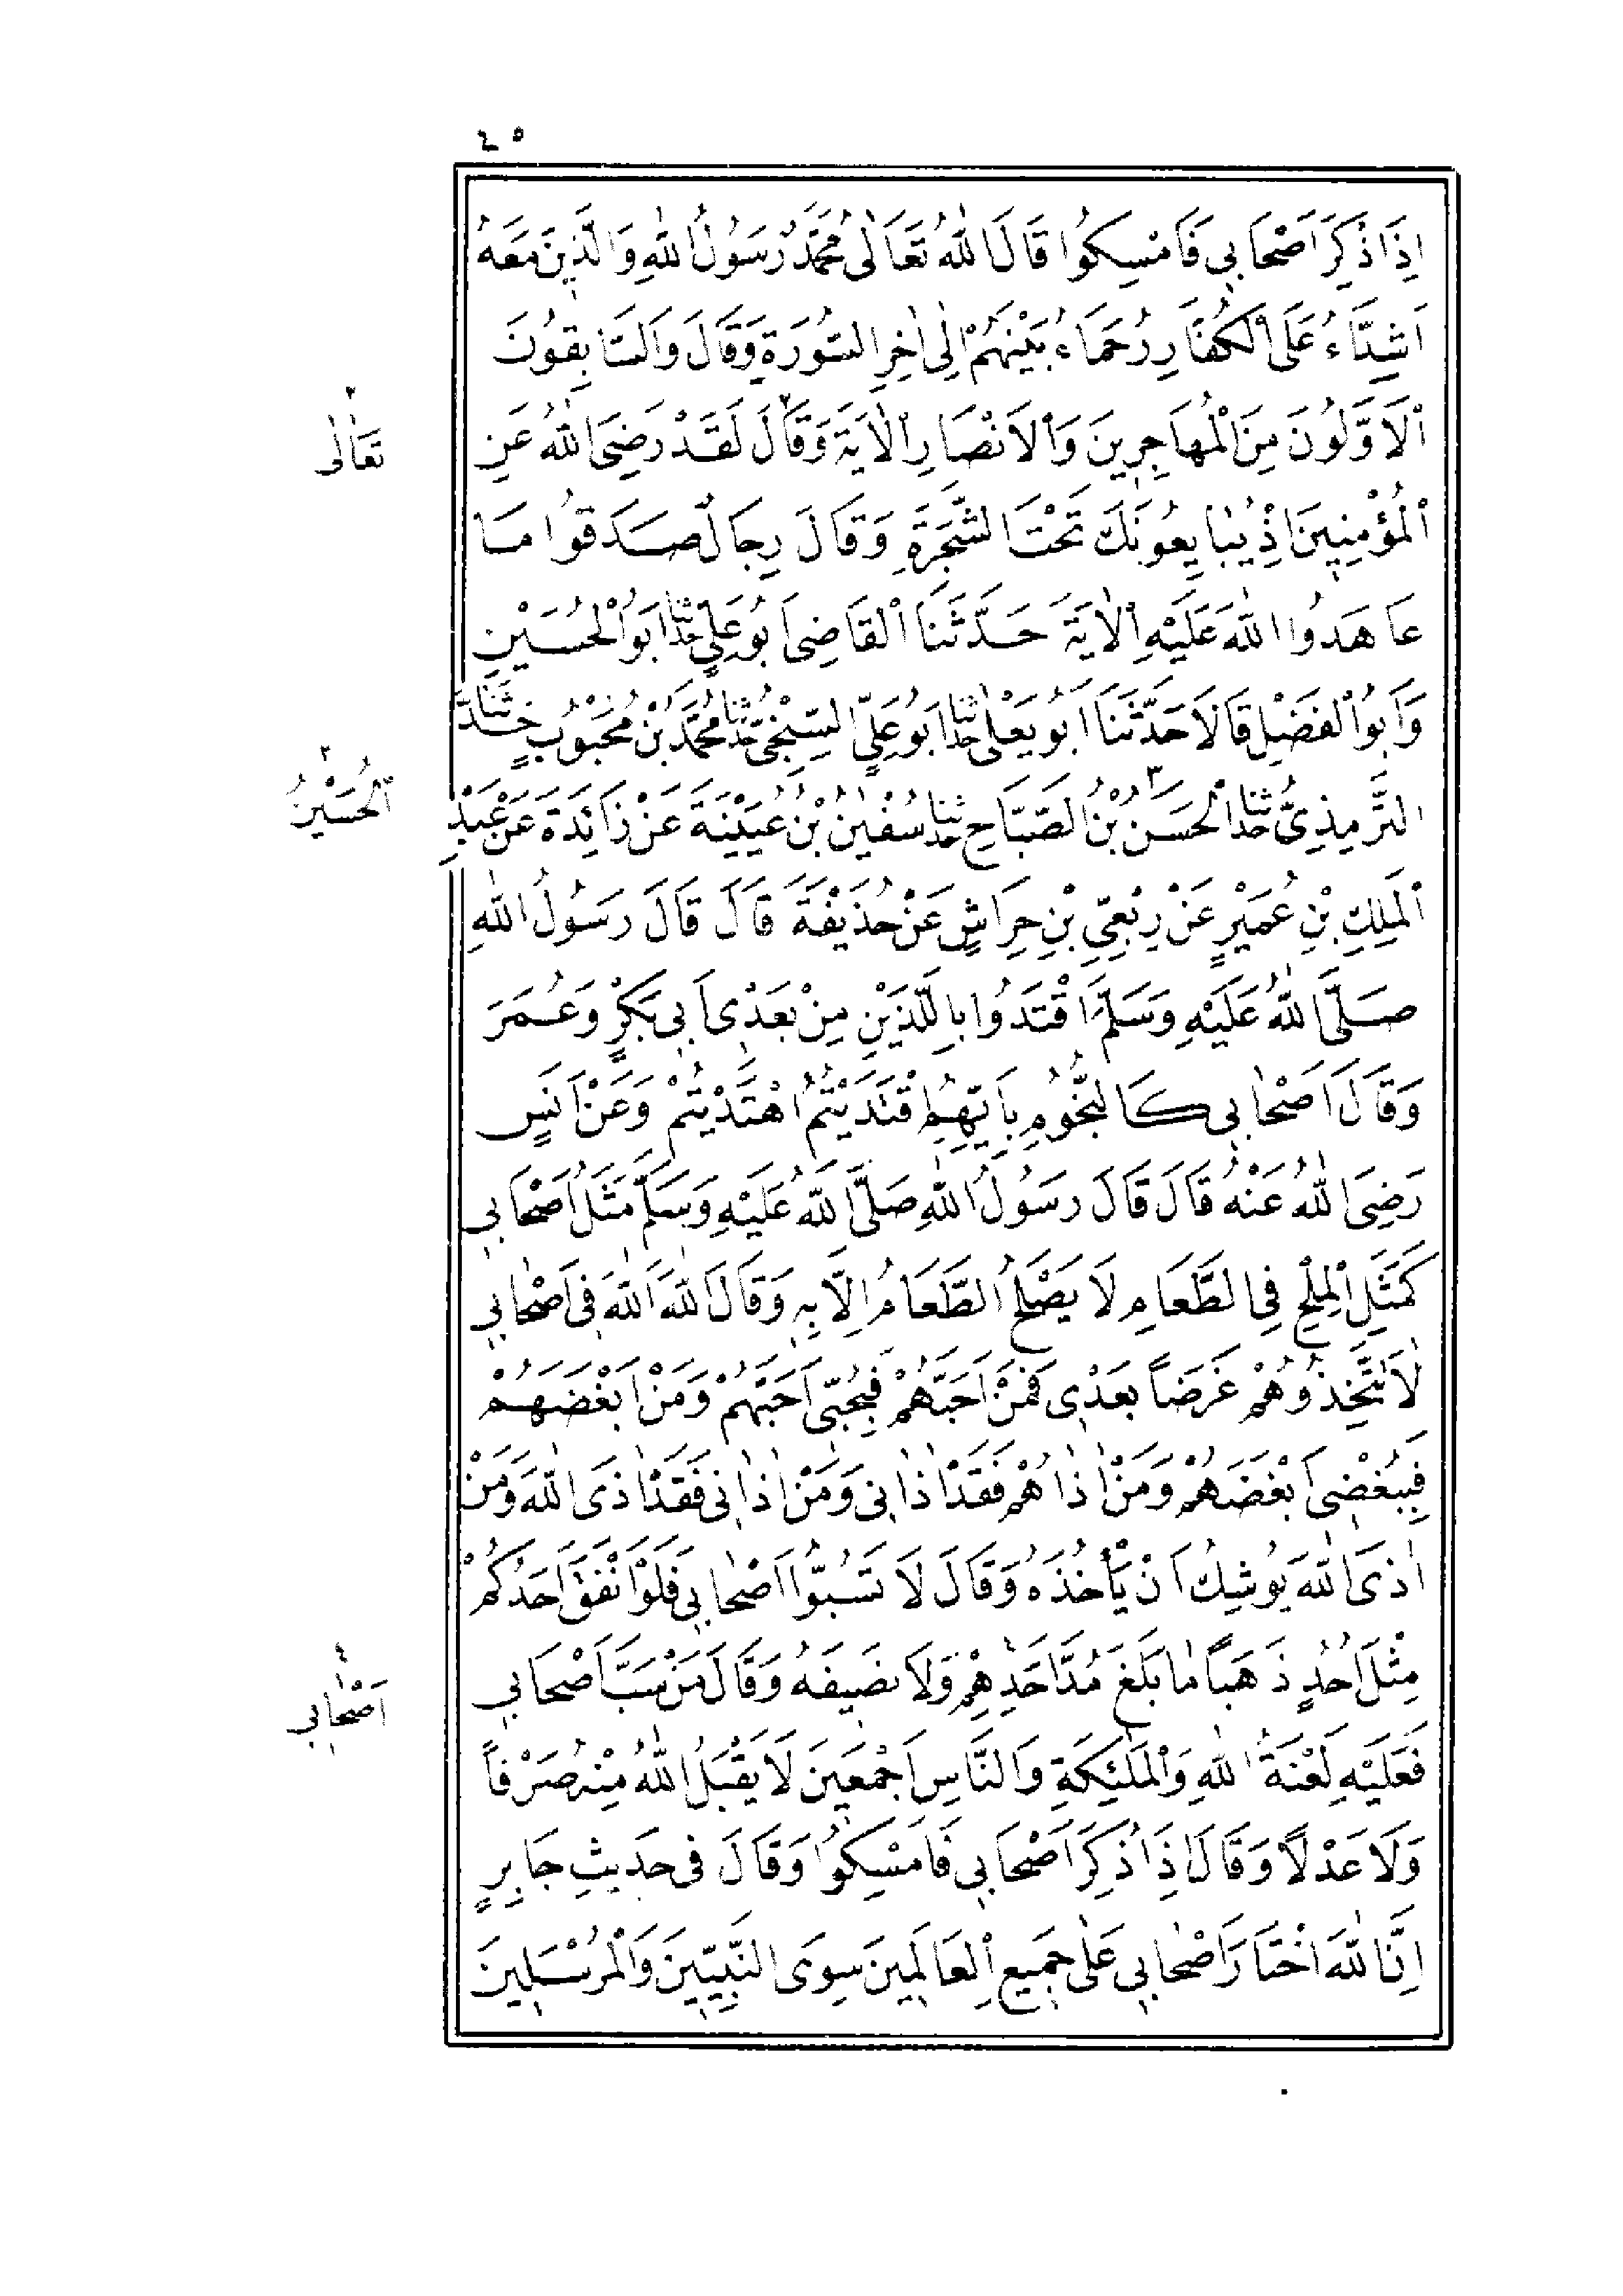 ٤٥
اِذَا ذُكِرَ اَصْحَابِي فَاَمْسِكُوا قَالَ اللّٰهُ تَعَالٰى مُحَمَّدٌ رَسُولُ اللّٰهِ وَالَّذِينَ مَعَهُ
اَشِدَّاءُ عَلَى الْكُفَّارِ رُحَمَاءُ بَيْنَهُمْ اِلٰى اٰخِرِ السُّورَةِ وَقَالَ وَالسَّابِقُونَ
الْاَوَّلُونَ مِنَ الْمُهَاجِرِينَ وَالْاَنْصَارِ الْاٰيَةَ وَقَالَ٢ لَقَدْ رَضِيَ اللّٰهُ عَنِ
تَعَالٰى٢
الْمُؤْمِنِينَ اِذْ يُبَايِعُونَكَ تَحْتَ الشَّجَرَةِ وَقَالَ رِجَالٌ صَدَقُوا مَا
عَاهَدُوا اللّٰهَ عَلَيْهِ الْاٰيَةَ حَدَّثَنَا الْقَاضِى اَبُو عَلِيٍّ حَدَّثَنَا اَبُو الْحُسَيْنِ
وَاَبُو الْفَضْلِ قَالَا حَدَّثَنَا اَبُو يَعْلٰى حَدَّثَنَا اَبُو عَلِيٍّ السِّنْجِيُّ حَدَّثَنَا مُحَمَّدُ بْنُ مَحْبُوبٍ حَدَّثَنَا
التِّرْمِذِيُّ حَدَّثَنَا الْحَسَنُ٣ بْنُ الصَّبَّاحِ حَدَّثَنَا سُفْيٰنُ بْنُ عُيَيْنَةَ عَنْ زَائِدَةَ عَنْ عَبْدِ
الْحُسَيْنُ٣
الْمَلِكِ بْنِ عُمَيْرٍ عَنْ رِبْعِيِّ بْنِ حِرَاشٍ عَنْ حُذَيْفَةَ قَالَ قَالَ رَسُولُ اللّٰهِ
صَلَّى اللّٰهُ عَلَيْهِ وَسَلَّمَ اقْتَدُوا بِاللَّذَيْنِ مِنْ بَعْدِى اَبِى بَكْرٍ وَعُمَرَ
وَقَالَ اَصْحٰابِى كَالنُّجُومِ بِاَيِّهِمِ اقْتَدَيْتُمُ اهْتَدَيْتُمْ وَعَنْ اَنَسٍ
رَضِيَ اللّٰهُ عَنْهُ قَالَ قَالَ رَسُولُ اللّٰهِ صَلَّى اللّٰهُ عَلَيْهِ وَسَلَّمَ مَثَلُ اَصْحَابِي
كَمَثَلِ الْمِلْحِ فِى الطَّعَامِ لَا يَصْلُحُ الطَّعَامُ اِلَّا بِهِ وَقَالَ اللّٰهَ اَللّٰهَ فِى اَصْحٰابِي
لَا تَتَّخِذُوهُمْ غَرَضًا بَعْدِى فَمَنْ اَحَبَّهُمْ فَبِحُبِّى اَحَبَّهُمْ وَمَنْ اَبْغَضَهُمْ
فَبِبُغْضِى اَبْغَضَهُمْ وَمَنْ اٰذَاهُمْ فَقَدْ اٰذَانِى وَمَنْ اٰذَانِى فَقَدْ اٰذَى اللّٰهَ وَمَنْ
اٰذَى اللّٰهَ يُوشِكُ اَنْ يَأْخُذَهُ وَقَالَ لَا تَسُبُّوا اَصْحٰابِي فَلَوْ اَنْفَقَ اَحَدُكُمْ
مِثْلَ اُحُدٍ ذَهَبًا مٰا بَلَغَ مُدَّ اَحَدِهِمْ وَلَا نَصِيفَهُ وَقَالَ مَنْ سَبَّ اَصْحَابِي
اَصْحٰابِي٤
فَعَلَيْهِ لَعْنَةُ اللّٰهِ وَالْمَلٰئِكَةِ وَالنَّاسِ اَجْمَعِينَ لَا يَقْبَلُ اللّٰهُ مِنْهُ صَرْفًا
وَلَا عَدْلًا وَقَالَ اِذَا ذُكِرَ اَصْحَابِي فَاَمْسِكُوا وَقَالَ فِى حَدِيثِ جَابِرٍ
اِنَّ اللّٰهَ اخْتَارَ اَصْحٰابِي عَلٰى جَمِيعِ الْعَالَمِينَ سِوَى النَّبِيِّينَ وَالْمُرْسَلِينَ